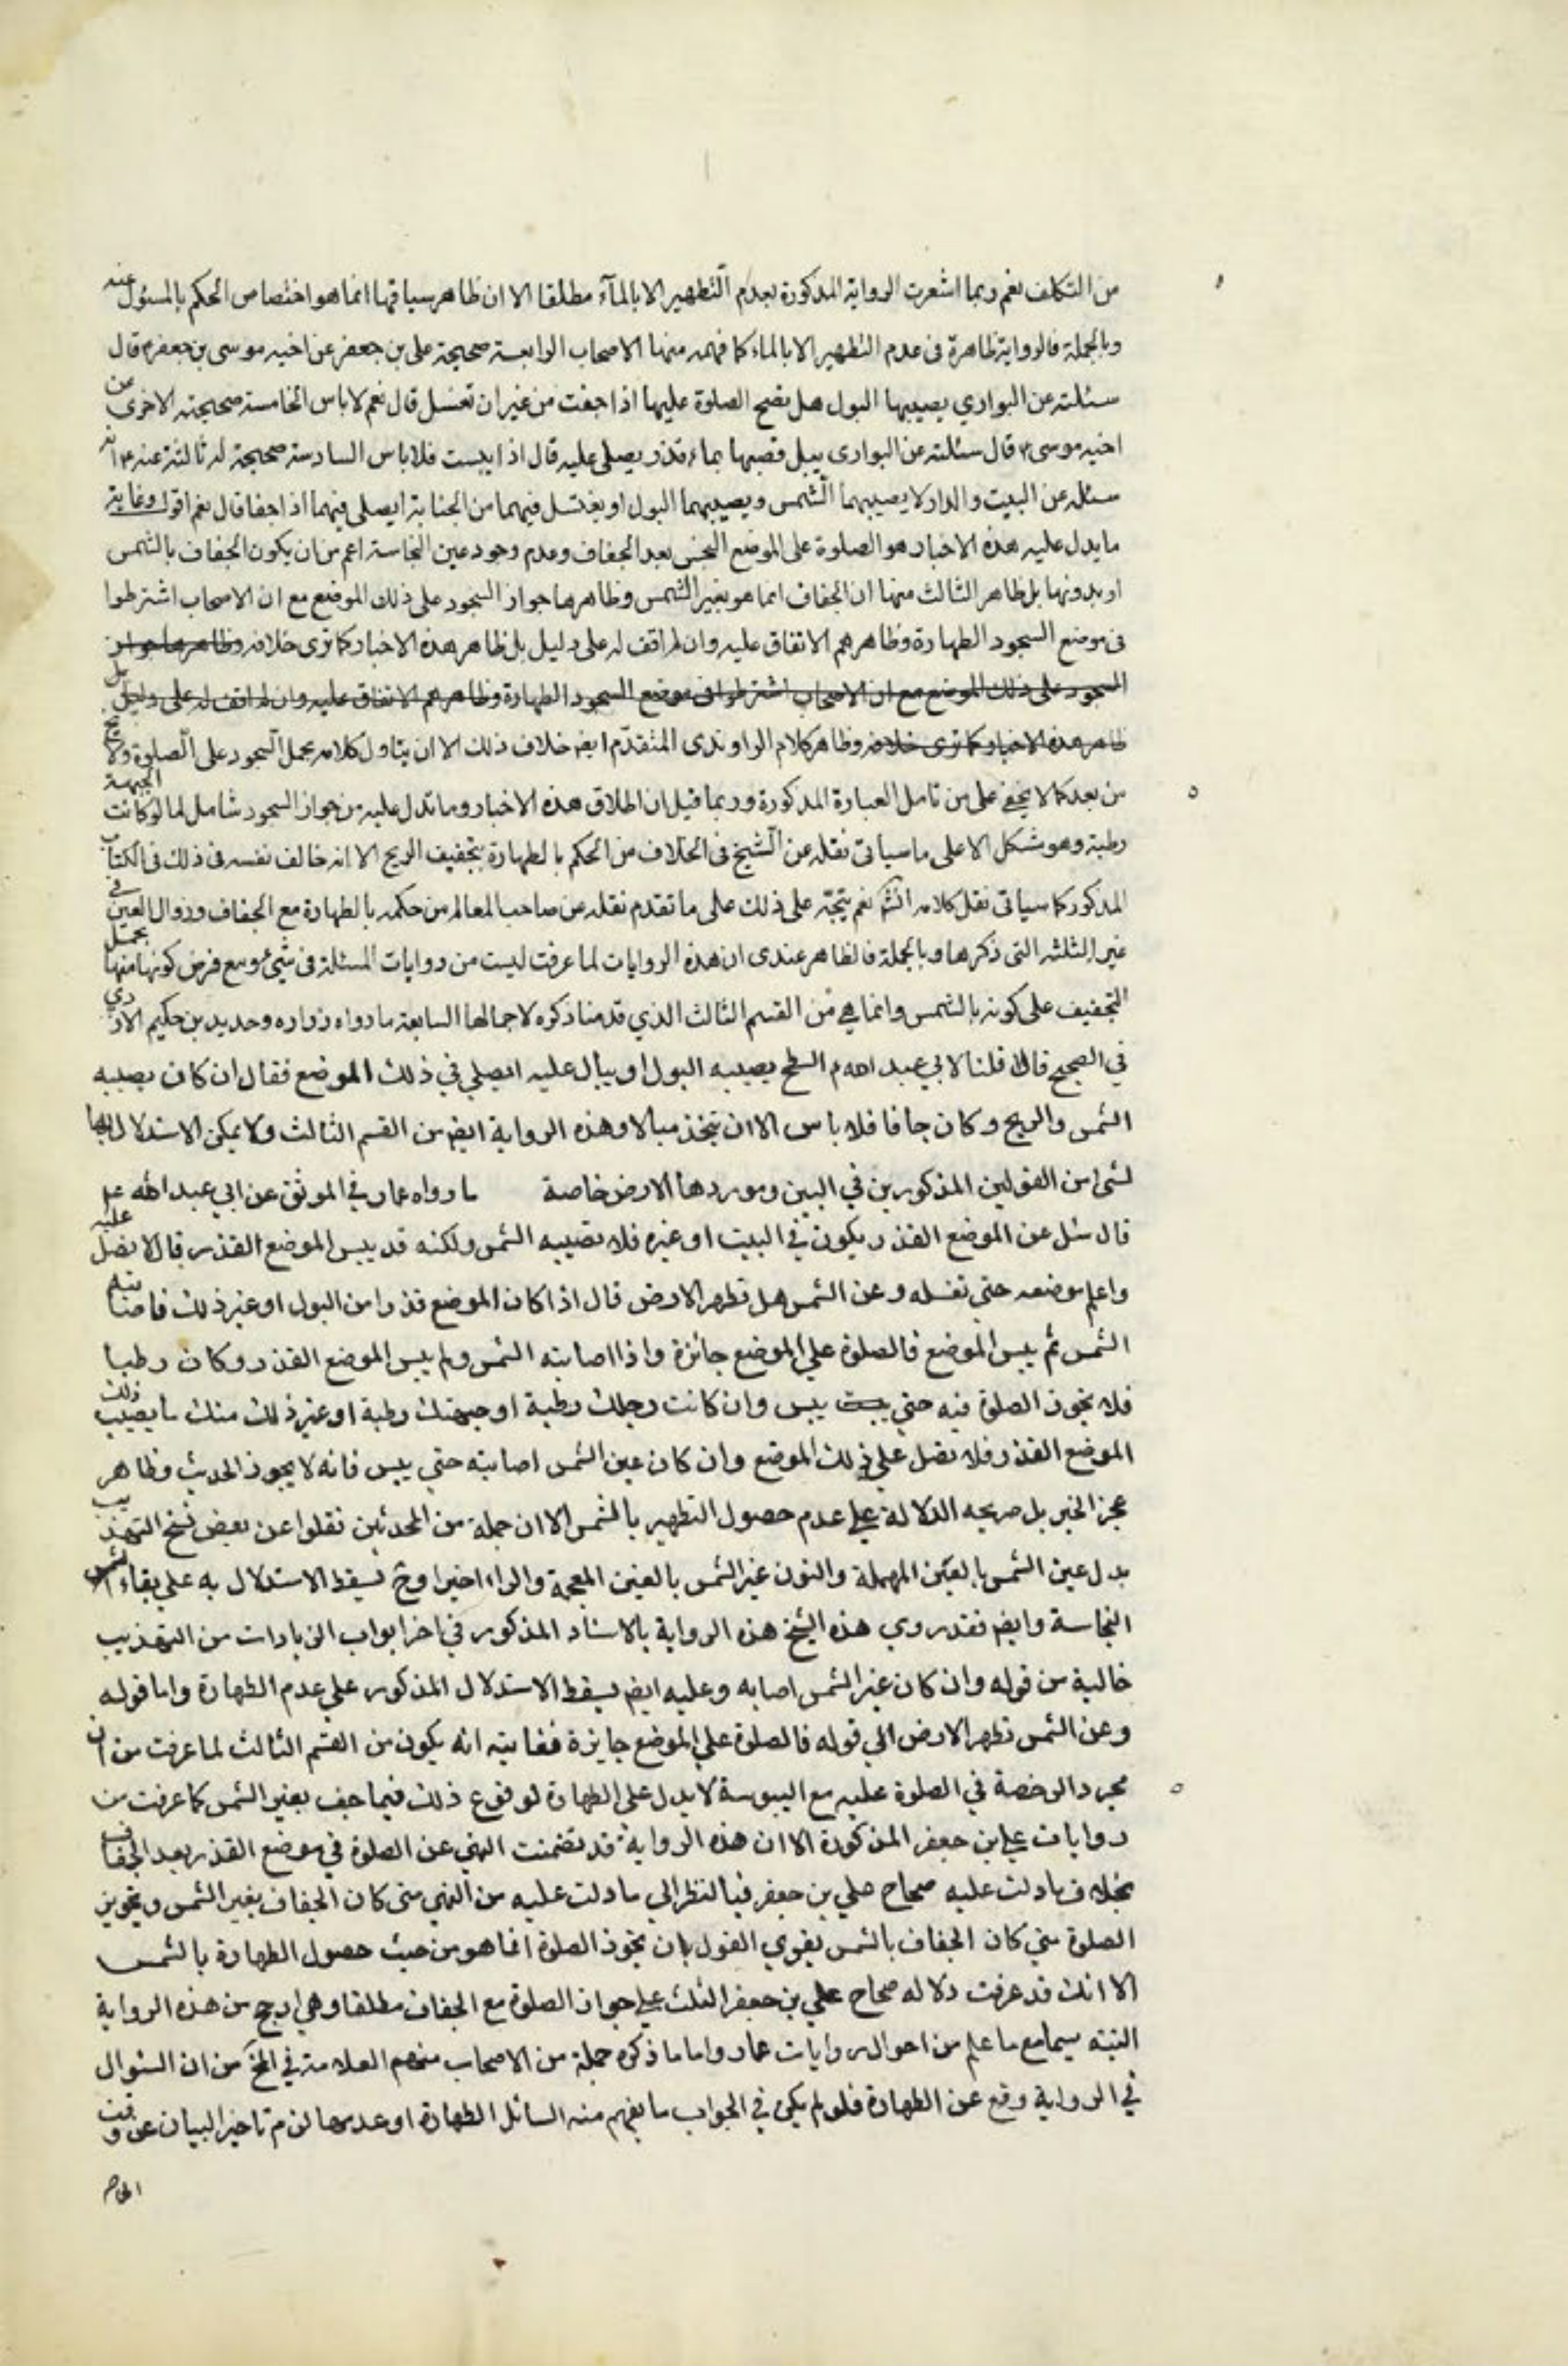 من التكلف نعم ربما اشعرت الرواية المذكورة بعدم التطهير الا بالمآء مطلقا الا ان ظاهر سياقها انما هو اختصاص الحكم بالمسئول عنه
وبالجملة فالرواية ظاهرة فى عدم التطهير الا بالماء كما فهمه منها الاصحاب الرابعة صحيحة على بن جعفر عن اخيه موسى بن جعفر ع قال
سئلته عن البواري يصيبها البول هل تصح الصلوة عليها اذا جفت من غير ان تغسل قال نعم لا باس الخامسة صحيحته الاخرى عن
اخيه موسى ع قال سئلته عن البوارى يبل قصبها بماء قذر يصلى عليه قال اذا يبست فلا باس السادسة صحيحة له ثالثة عنه ع انه
سئله عن البيت والدار لا يصيبهما الشمس ويصيبهما البول او يغتسل فيهما من الجنابة ايصلى فيهما اذا جفا قال نعم اقول وغاية
ما يدل عليه هذه الاخبار هو الصلوة على الموضع النجس بعد الجفاف وعدم وجود عين النجاسة اعم من ان يكون الجفاف بالشمس
او بدونها بل ظاهر الثالث منها ان الجفاف انما هو بغير الشمس وظاهرها جواز السجود على ذلك الموضع مع ان الاصحاب اشترطوا
فى موضع السجود الطهارة وظاهرهم الاتفاق عليه وان لم اقف له على دليل بل ظاهر هذه الاخبار كما ترى خلافه وظاهرها جواز
السجود على ذلك الموضع مع ان الاصحاب اشترطوا فى موضع السجود الطهارة وظاهرهم الاتفاق عليه وان لم اقف له على دليل بل
ظاهر هذه الاخبار كما ترى خلافه وظاهر كلام الراوندى المتقدم ايضا خلاف ذلك الا ان يتاول كلامه بحمل السجود على الصلوة ولا يخ
من بعد كما لا يخفى على من تامل العبارة المذكورة وربما قيل ان اطلاق هذه الاخبار وما تدل عليه من جواز السجود شامل لما لو كانت الجبهة
رطبة وهو مشكل الا على ما سياتى نقله عن الشيخ فى الخلاف من الحكم بالطهارة بتجفيف الريح الا انه خالف نفسه فى ذلك فى الكتاب
المذكور كما سياتى نقل كلامه انشَ نعم يتجه على ذلك على ما تقدم نقله عن صاحب المعالم من حكمه بالطهارة مع الجفاف وزوال العين فى
غير الثلثه التى ذكرها وبالجملة فالظاهر عندى ان هذه الروايات لما عرفت ليست من روايات المسئلة فى شئ ومع فرض كونها منها يحمل
التجفيف على كونه بالشمس وانما هي من القسم الثالث الذي قدمنا ذكره لاجمالها السابعة ما رواه زراره وحديد بن حكيم الازدي
في الصحيح قالا قلنا لابي عبد الله م السطح يصيبه البول او يبال عليه ايصلي في ذلك الموضع فقال ان كان يصيبه
الشمس والريح وكان جافا فلا باس الا ان يتخذ مبالا وهذه الرواية ايضا من القسم الثالث ولا يمكن الاستدلال بها
لشئ من القولين المذكورين في البين وموردها الارض خاصة ما رواه عمار في الموثق عن ابي عبد الله ع
قال سئل عن الموضع القذر يكون في البيت او غيره فلا تصيبه الشمس ولكنه قد يبس الموضع القذر قال لا تصل عليه
واعلم موضعه حتى تغسله وعن الشمس هل تطهر الارض قال اذا كان الموضع قذرا من البول او غير ذلك فاصابته
الشمس ثم يبس الموضع فالصلوة على الموضع جائزة واذا اصابته الشمس ولم يبس الموضع القذر وكان رطبا
فلا تجوز الصلوة فيه حتى يبس وان كانت رجلك رطبة او جبهتك رطبة او غير ذلك منك ما يصيب ذلك
الموضع القذر فلا تصل على ذلك الموضع وان كان عين الشمس اصابته حتى يبس فانه لا يجوز الحديث وظاهر
عجز الخبر بل صريحه الدلالة على عدم حصول التطهير بالشمس الا ان جملة من المحدثين نقلوا عن بعض نسخ التهذيب
بدل عين الشمس بالعين المهملة والنون غير الشمس بالغين المعجمة والراء اخيرا وح فيسقط الاستدلال به على بقاء
النجاسة وايضا فقد روي هذه الشيخ هذه الرواية بالاسناد المذكور في اخر ابواب الزيادات من التهذيب
خالية من قوله وان كان غير الشمس اصابه وعليه ايضا يسقط الاستدلال المذكور على عدم الطهارة واما قوله
وعن الشمس تطهر الارض الي قوله فالصلوة على الموضع جايزة فغايته انه يكون من القسم الثالث لما عرفت من ان
مجرد الرخصة في الصلوة عليه مع اليبوسة لا يدل على الطهارة لوقوع ذلك فيما جف بغير الشمس كما عرفت من
روايات علي بن جعفر المذكورة الا ان هذه الرواية قد تضمنت النهي عن الصلوة في موضع القذر بعد الجفاف
بخلاف ما دلت عليه صحاح علي بن جعفر فبالنظر الي ما دلت عليه من النهي متى كان الجفاف بغير الشمس وتجويز
الصلوة متى كان الجفاف بالشمس يقوي القول بان تجوز الصلوة انما هو من حيث حصول الطهارة بالشمس
الا انك قد عرفت دلاله صحاح علي بن جعفر الثلث على جواز الصلوة مع الجفاف مطلقا وهي ارجح من هذه الرواية
البته سيما مع ما علم من احوال روايات عمار واما ما ذكره جملة من الاصحاب منهم العلامة في المخ من ان السئوال
في الرواية وقع عن الطهارة فلو لم يكن في الجواب ما يفهم منه السائل الطهارة او عدمها لزم تاخير البيان عن وقت